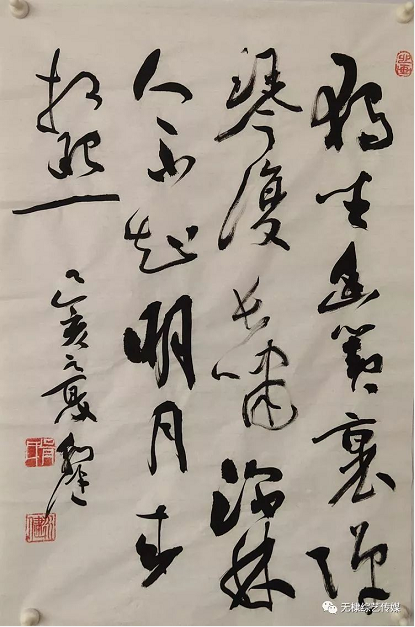 独坐幽篁裏弹
琴復长嘯深林
人不知明月来
相照
己亥之夏
无棣综艺传媒